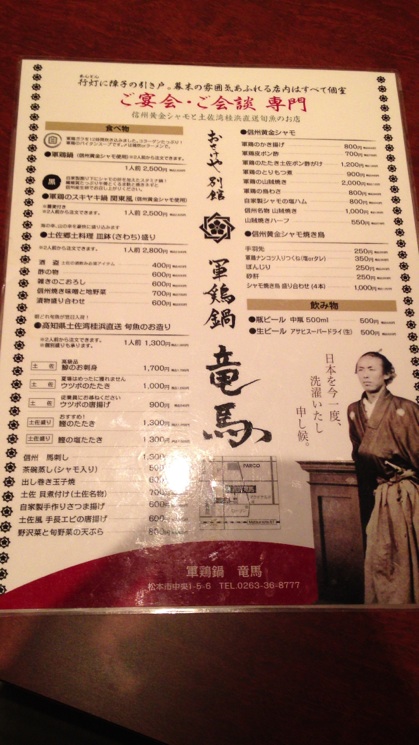 行灯に障子の引き戸。幕末の雰囲気あふれる店内はすべて個室
ご宴会・ご会談 専門
信州黄金シャモと土佐湾桂浜直送旬魚のお店
食べ物
●軍鶏鍋(信州黄金シャモ使用)※2人前から注文できます。
1人前 2,500円
黒
●軍鶏のスキヤキ鍋 関東風(信州黄金シャモ使用)
※2人前から注文できます。
1人前 2,500円
●土佐郷土料理 皿鉢(さわち)盛り
※2人前から注文できます。
1人前 2,800円
酒盗 400円
酢の物 600円
雑きのこおろし 600円
信州焼き味噌と地野菜 700円
漬物盛り合わせ 600円
●高知県土佐湾桂浜直送 旬魚のお造り
※2人前から注文できます。
1人前 1,300円
土佐 鯨のお刺身 1,700円
土佐 ウツボのたたき 1,000円
土佐 ウツボの唐揚げ 900円
おすすめ!
土佐盛り 鰹のたたき 1,300円
土佐盛り 鰹の塩たたき 1,300円
信州 馬刺し
茶碗蒸し(シャモ入り)
出し巻き玉子焼
土佐 貝煮付け(土佐名物)
自家製手作りさつま揚げ
土佐風 手長エビの唐揚げ
野沢菜と旬野菜の天ぷら
おさけや 別館
軍鶏鍋
竜馬
●信州黄金シャモ
軍鶏のかき揚げ 800円
軍鶏皮ポン酢 700円
軍鶏のたたき土佐ポン酢がけ 1,200円
軍鶏のとりもつ煮 900円
軍鶏の山賊焼き 2,000円
軍鶏の梅わさ 800円
自家製シャモの塩ハム 800円
信州名物 山賊焼き 1,000円
山賊焼きハーフ 550円
●信州黄金シャモ焼き鳥
手羽先 250円
軍鶏ナンコツ入りつくね(塩orタレ) 350円
ぼんじり 250円
砂肝 250円
シャモ焼き鳥 盛り合わせ(4本) 1,000円
飲み物
●瓶ビール 中瓶 500ml 500円
●生ビール アサヒスーパードライ(生) 500円
日本を今一度、
洗濯いたし
申し候。
PARCO
軍鶏鍋 竜馬
松本市中央1-5-6 TEL.0263-36-8777